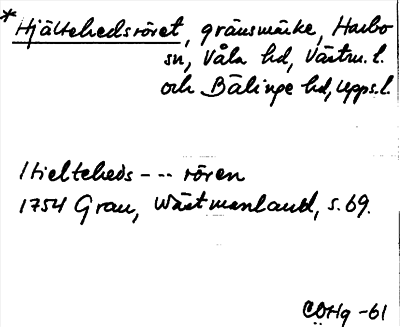 *Hjältehedsröret, gränsmärke, Harbo
sn, Våla hd, Västm. l.
och Bälinge hd, Upps. l.
Hielteheds --- rören
1754 Grau, Wästmanland, s. 69.
CÖHg -61